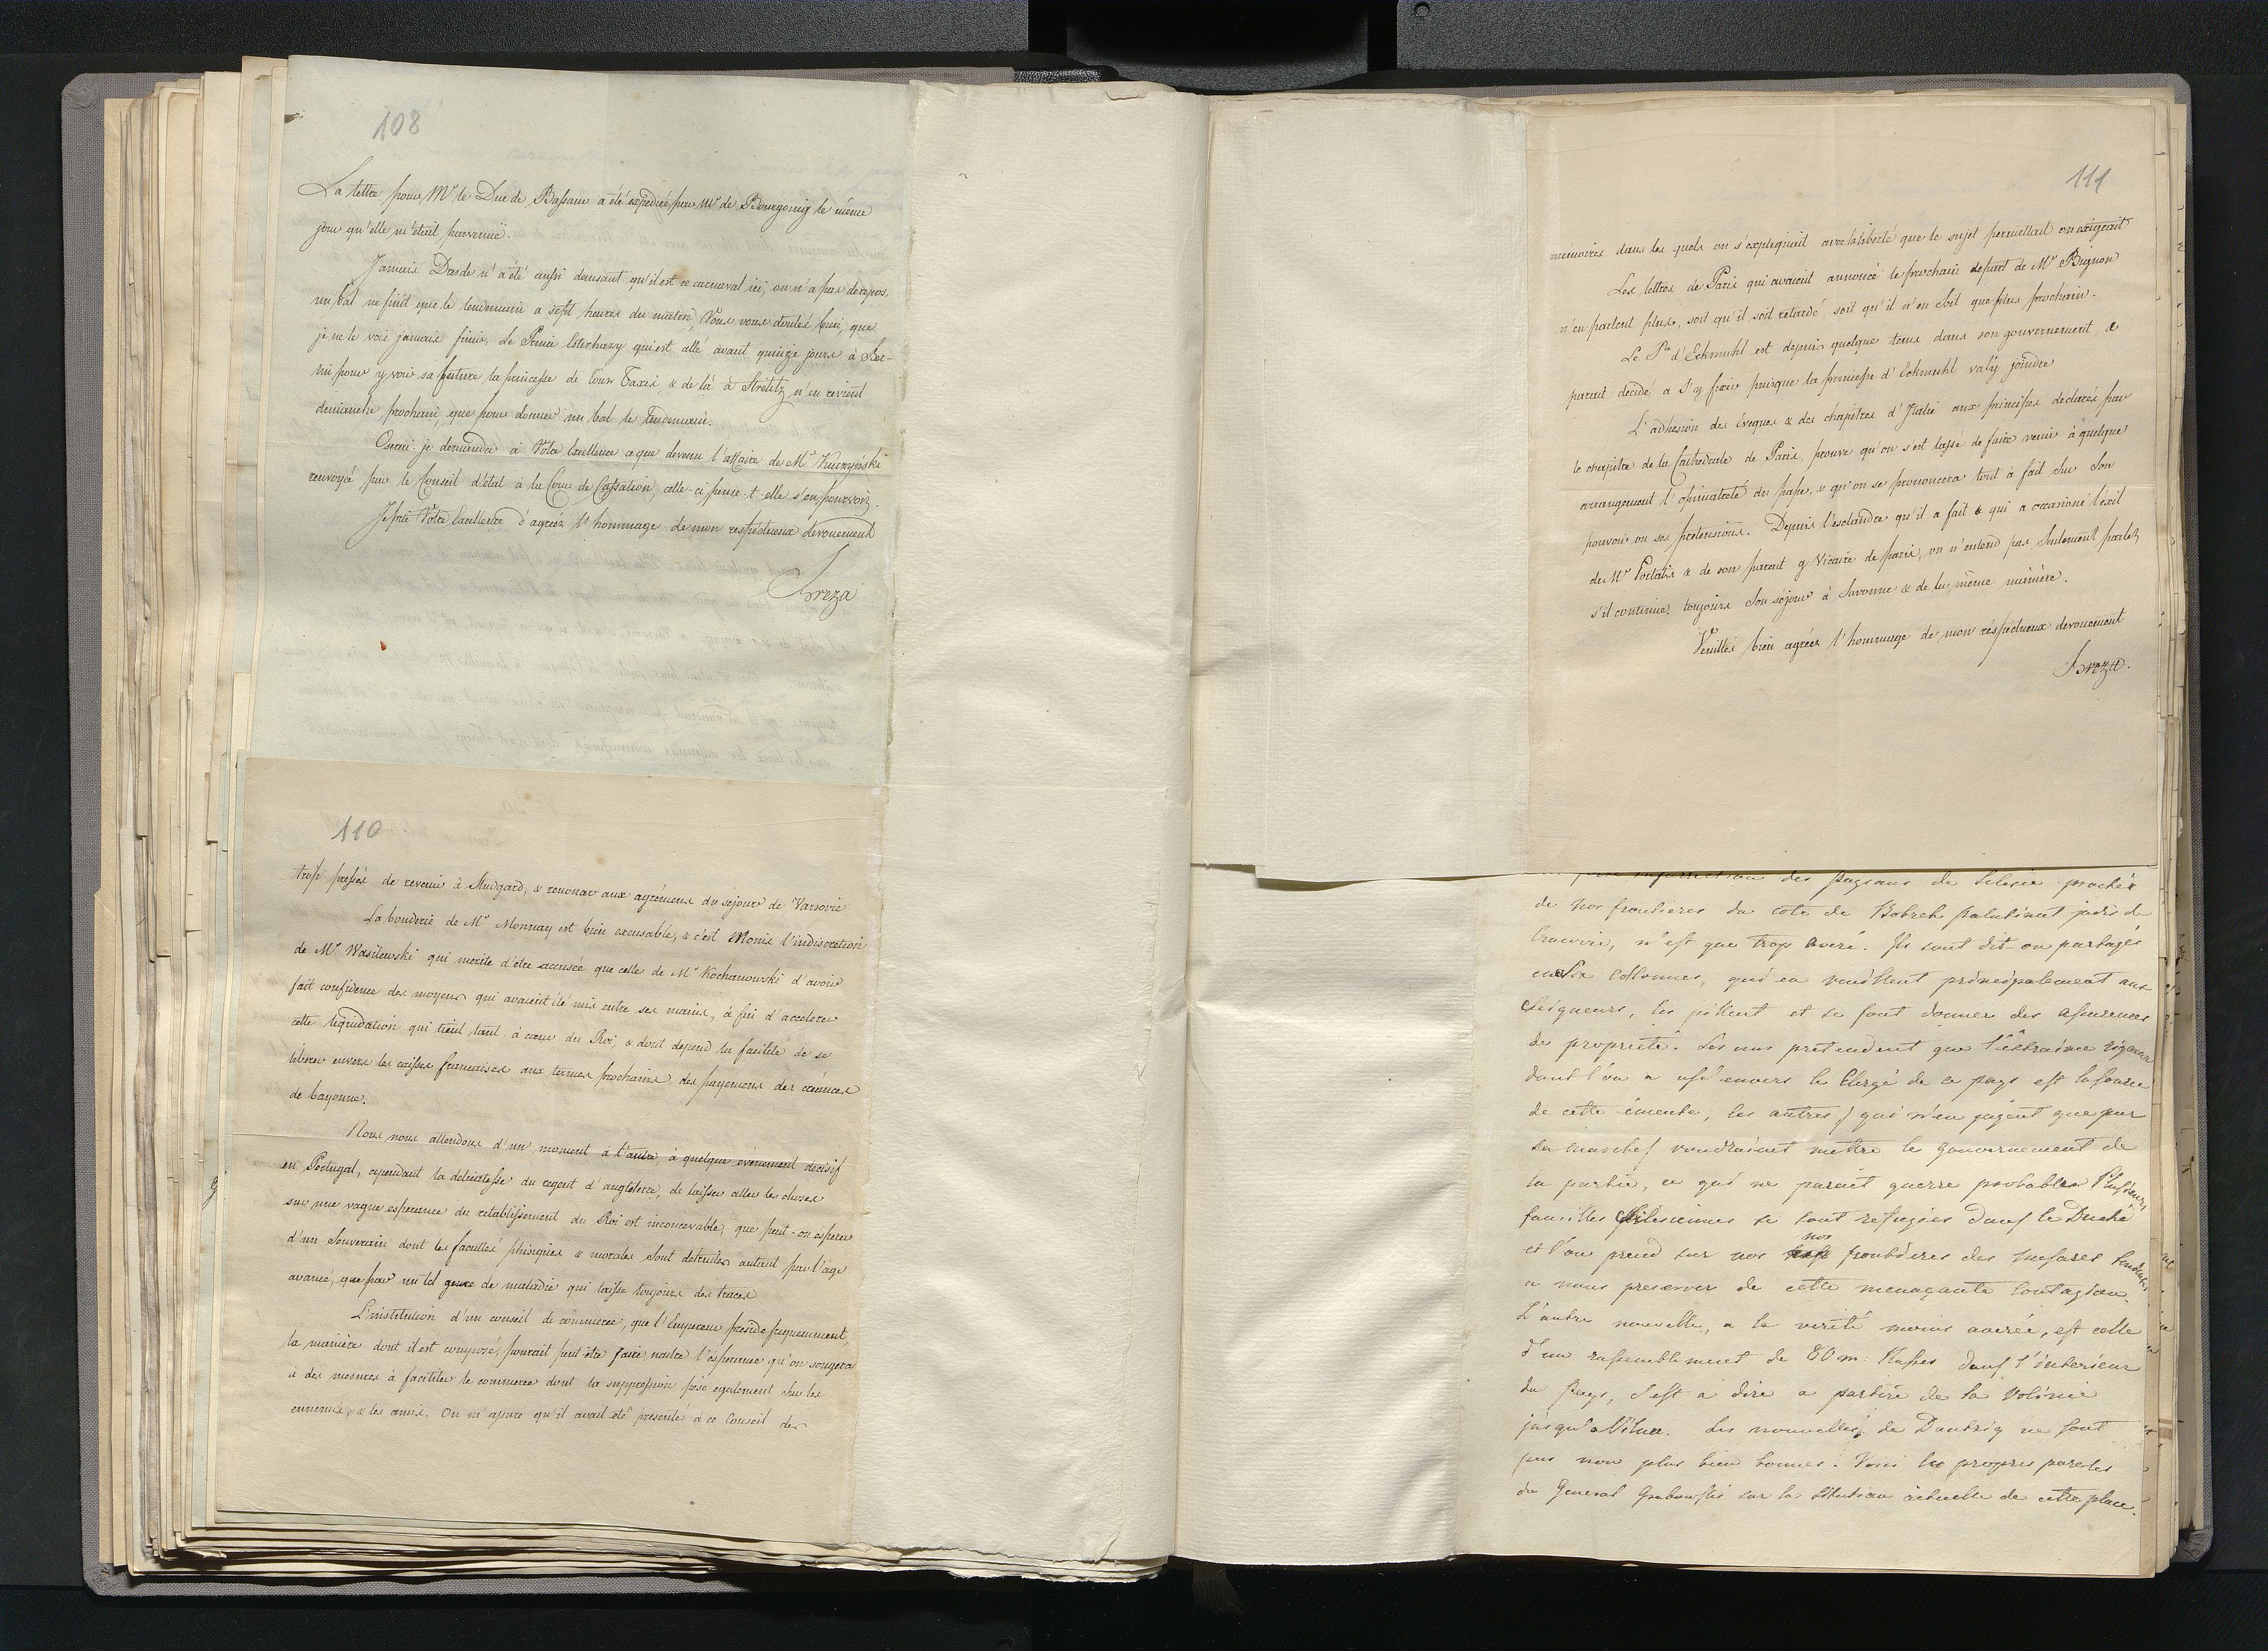 108
La lettre pour Mr le Duc de Bassano a été expediée par Mr de Bourgoing le même
jour qu'elle m'etait parvenue.
Jamais Dresde n'a été aussi dansant qu'il est ce carnaval ici, on n'a pas de repos,
un bal ne finit que le lendemain a sept heures du matin, Vous vous doutés bien, que
je ne le vois jamais finir, Le Prince Esterhazy qui est allé avant quinze jours à Ber-
lin pour y voir sa future la princesse de Tour Taxis, & de là à Strelitz, n'en revient
dimanche prochain, que pour donner un bal le lendemain.
Oserai-je demander à Votre Excellence ce que devenu l'affaire de Mr Kuczyński
renvoyé par le Conseil d'état à la Cour de Cassation, celle-ci pense-t-elle s'en pourvoir.
Je prie Votre Excellence d'agréér l'hommage de mon respectueux devouement
Breza
110
trop pressé de revenir à Studgard, & renoncer aux agrémens du séjour de Varsovie
La bouderie de Mr Monnay est bien excusable, & c'est Moins l'indiscretion
de Mr Wasilewski qui merite d'être accusée que celle de Mr Kochanowski d'avoir
fait confidence des moyens qui avaient été mis entre ses mains, à fin d'accelerer
cette liquidation qui tient tant à cœur du Roi, & dont depend la facilité de se
librer envers les caisses françaises aux termes prochains des payemens des créances
de bayonne.
Nous nous attendons d'un moment à l'autre, à quelque évenement décisif
en Portugal, cependant la délicatesse du regent d'angleterre, de laisser aller les choses
sur une vague esperance du retablissement du Roi est inconcevable; que peut-on ésperer
d'un Souverain dont les facultés phisiques & morales sont detruites autant par l'age
avancé, que par un tel genre de maladie qui laisse toujours des traces
L'institution d'un conseil de commerce, que l'Empereur preside frequemment,
la manière dont il est composé, pourait peut être faire naitre l'ésperance qu'on songera
à des mesures à faciliter le commerce dont la suppression pèse egalement sur les
ennemis, & les amis. On m'assure qu'il avait été presenté à ce Conseil des
111
mémoires dans les quels on s'expliquait avec la liberté que le sujet permettait ou exigeait
Les lettres de Paris qui avaient annoncé le prochain depart de Mr Bignon
n'en parlent plus, soit qu'il soit retardé, soit qu'il n'en soit que plus prochain.
Le Pce d'Eckmuhl est depuis quelque tems dans son gouvernement, &
parait decidé a s'y fixer puisque la princesse d'Eckmuhl va l'y joindre
L'adhesion des Eveques & des chapitres d'Italie aux principes déclarés par
le chapitre de la Cathedrale de Paris, prouve qu'on s'est lassé de faire venir à quelque
arrangement l'opiniatreté du pape, & qu'on se prononcera tout à fait sur son
pouvoir ou ses pretensions. Depuis l'esclandre qu'il a fait & qui a occasioné l'exil
de Mr Portalis & de son parent g Vicaire de paris, on n'entend pas seulement parler,
s'il continue toujours son séjour à Savonne & de la même manière.
Veuillés bien agréér l'hommage de mon réspectueux devouement
Breza.
insurrection des paysans de Silesie proches
de nos frontieres du coté de Bobrek palatinat jadis de
Cracovie, n'est que trop averé. Ils sont dit on partagés
en Six collonnes, qui en veuillent principalement aux
Seigneurs, les pillent et se font donner des assurences
de proprieté. Les uns prétendent que l'extraime rigueur
dont l'on a usé envers le Clergé de ce pays est la source
de cette émeute, les autres / qui n'en jugent que par
sa marche / voudraient mettre le gouvernement de
la partie, ce qui ne parait guerre probable. Plusieurs
familles Silesiennes se sont refugiées dans le Duché
et l'on prend sur nos frontieres des mesures tendantes
nos
a nous preserver de cette menaçante contagion.
L'autre nouvelle, a la verité moins averée, est celle
d'un rassemblement de 80 m. Russes dans l'interieur
du pays, c'est a dire a partire de la Volinie
jusqu'a Vilna. Les nouvelles de Dantzig ne sont
pas non plus bien bonnes. Voici les propres paroles
du General Grabowski sur la situation actuelle de cette place.